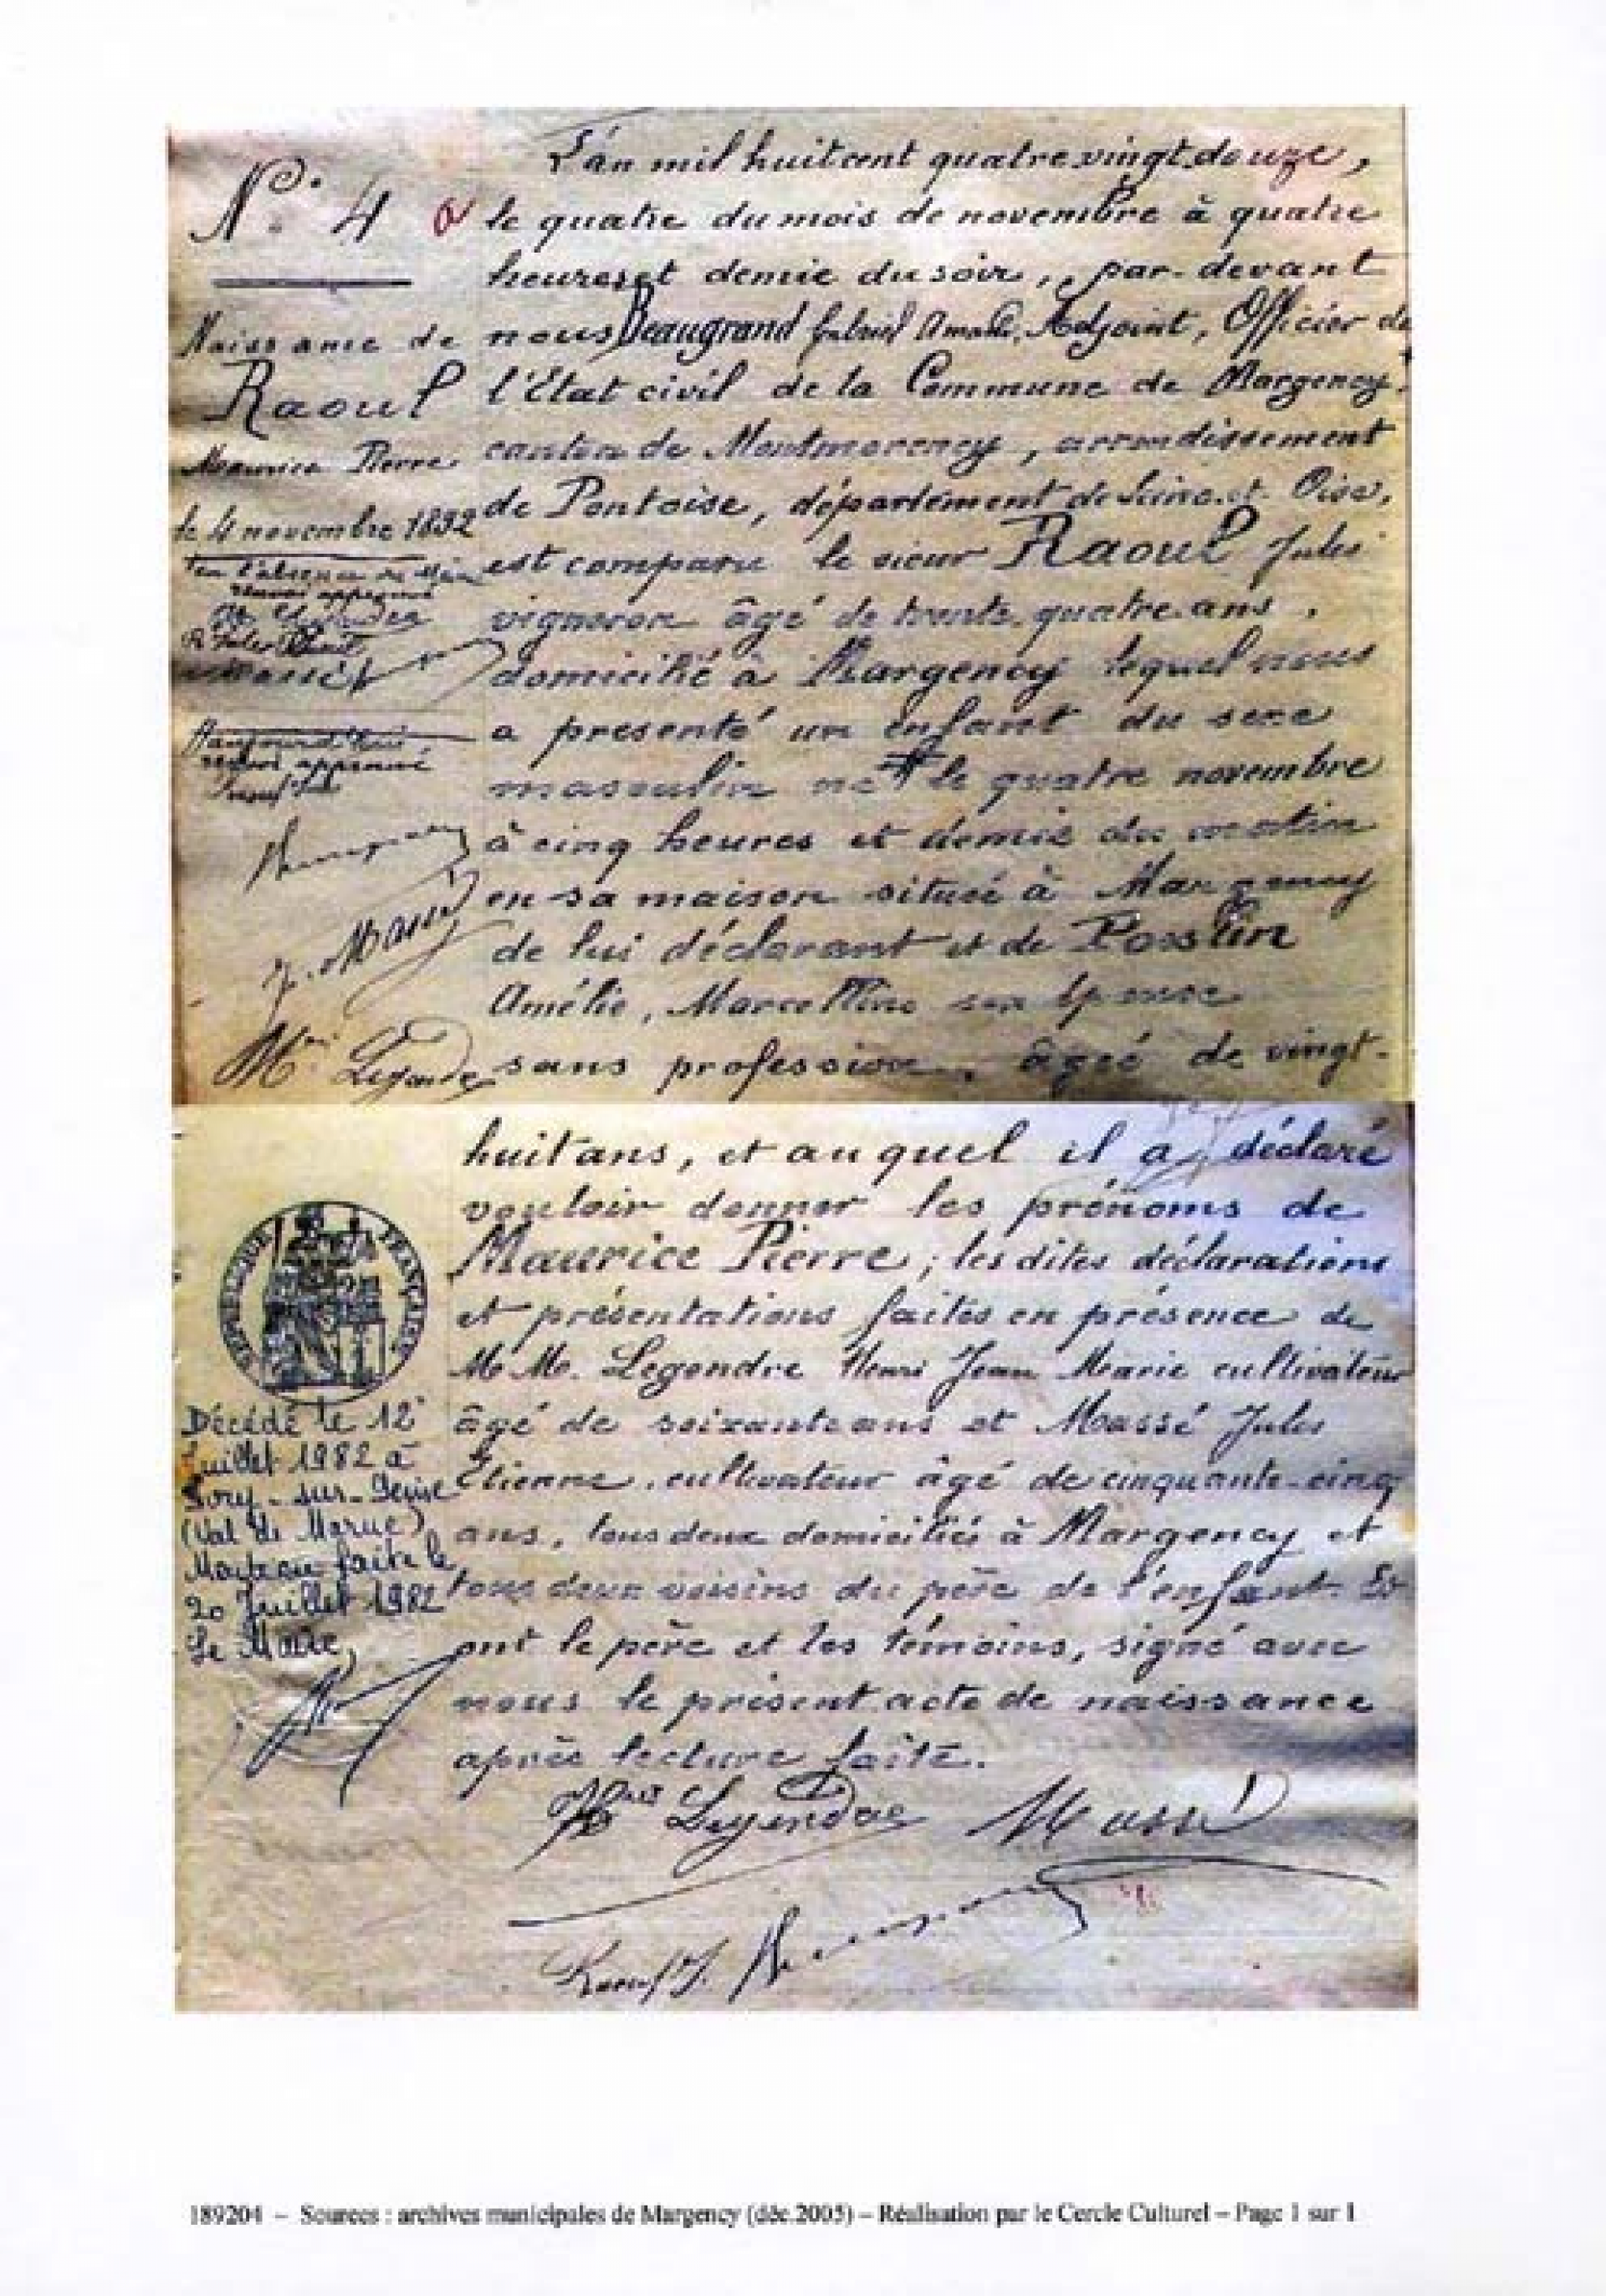 N° 4
Naissance de
Raoul
Maurice Pierre
le 4 novembre 1892
en l'absence du Maire
renvoi approuvé
Aujourd'hui,
renvoi approuvé
J. Massé
Legendre
L'an mil huit cent quatre vingt douze,
le quatre du mois de novembre à quatre
heures et demie du soir, par-devant
nous Beaugrand Gabriel Amand, Adjoint, Officier de
l'État civil de la Commune de Margency,
canton de Montmorency, arrondissement
de Pontoise, département de Seine-et-Oise,
est comparu le sieur Raoul Jules
vigneron âgé de trente-quatre ans,
domicilié à Margency lequel nous
a présenté un enfant du sexe
masculin né le quatre novembre
à cinq heures et demie du matin
en sa maison située à Margency
de lui déclarant et de
Amélie, Marcelline son épouse
sans profession, âgée de vingt-
huit ans, et auquel il a déclaré
vouloir donner les prénoms de
Maurice Pierre ; les dites déclarations
et présentations faites en présence de
M.M. Legendre Henri Jean Marie cultivateur
âgé de soixante ans et Massé Jules
Étienne, cultivateur âgé de cinquante-cinq
ans, tous deux domiciliés à Margency et
tous deux voisins du père de l'enfant. Et
ont le père et les témoins, signé avec
nous le présent acte de naissance
après lecture faite.
Legendre Massé
Raoul J.
RÉPUBLIQUE FRANÇAISE
Décédé le 12
Juillet 1982 à
Ivry-sur-Seine
(Val de Marne)
Mention faite le
20 Juillet 1982
Le Maire,
189204 – Sources : archives municipales de Margency (déc.2005) – Réalisation par le Cercle Culturel – Page 1 sur 1